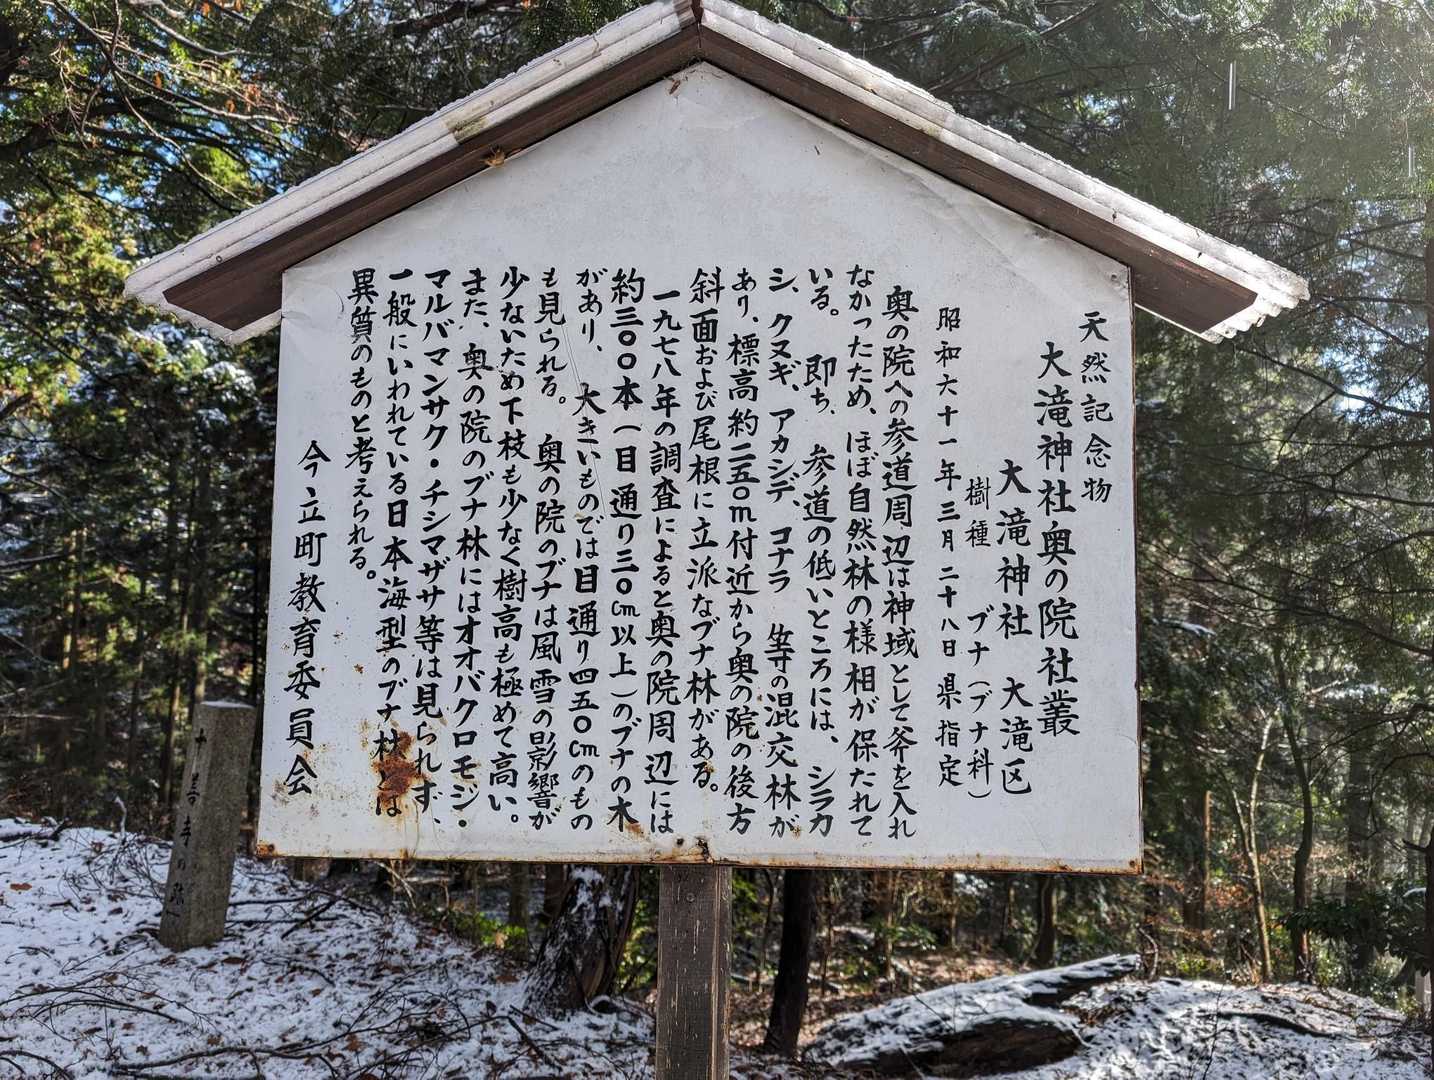 天然記念物
大滝神社奥の院社叢
大滝神社 大滝区
樹種 ブナ(ブナ科)
昭和六十一年三月二十八日県指定
奥の院への参道周辺は神域として斧を入れ
なかったため、ほぼ自然林の様相が保たれて
いる。 即ち、参道の低いところには、シラカ
シ、クヌギ、アカシデ、コナラ 等の混交林が
あり、標高約二五〇m付近から奥の院の後方
斜面および尾根に立派なブナ林がある。
一九七八年の調査によると奥の院周辺には
約三〇〇本(目通り三〇㎝以上)のブナの木
があり、 大きいものでは目通り四五〇㎝のもの
も見られる。 奥の院のブナは風雪の影響が
少ないため下枝も少なく樹高も極めて高い。
また、奥の院のブナ林にはオオバクロモジ・
マルバマンサク・チシマザサ等は見られず、
一般にいわれている日本海型のブナ林とは
異質のものと考えられる。
今立町教育委員会